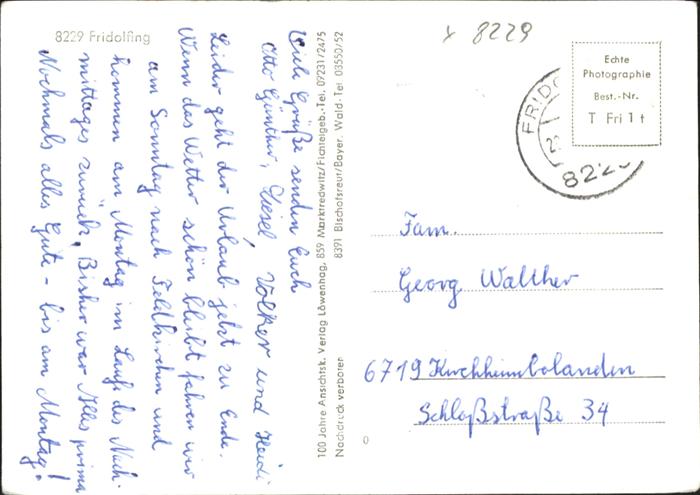 8229 Fridolfing
x 8229
Viele Grüße senden Euch
Otto Günther, Liesel Volker und Heidi
Leider geht der Urlaub jetzt zu Ende.
Wenn das Wetter schön bleibt fahren wir
am Sonntag nach Feldkirchen und
kommen am Montag im Laufe des Nach-
mittages zurück. Bisher war Alles prima
Nochmals alles Gute - bis am Montag!
100 Jahre Ansichtsk. Verlag Löwenhag, 859 Marktredwitz/Fichtelgeb.-Tel. 09231/2475
8391 Bischofsreut/Bayer. Wald - Tel 03550/52
Nachdruck verboten
0
Echte
Photographie
Best.-Nr.
T Fri 1 t
FRIDO
822
Fam.
Georg Walther
6719 Kirchheimbolanden
Schloßstraße 34